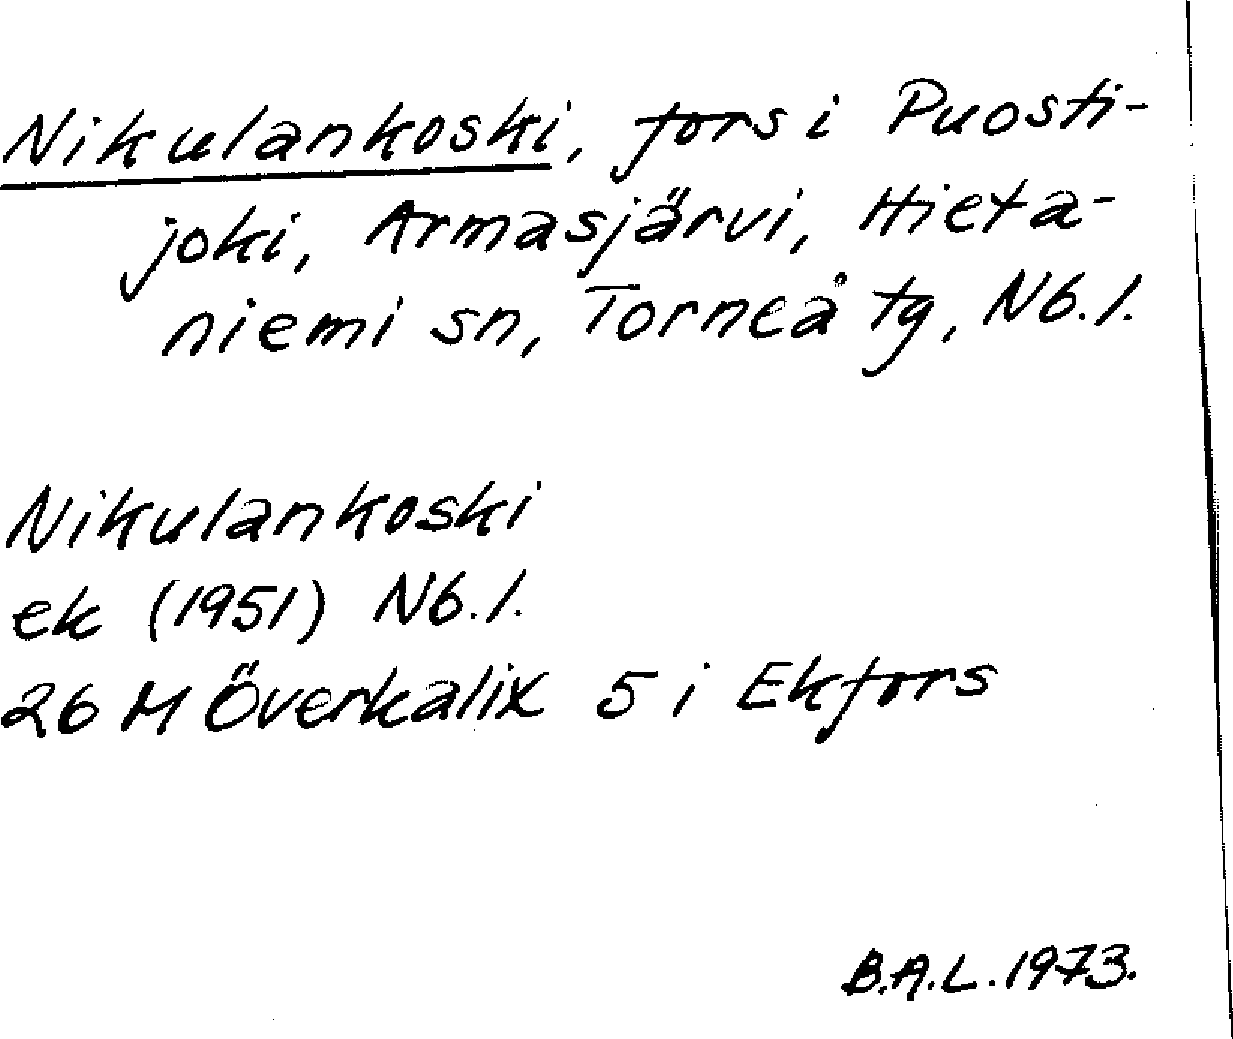 Nikulankoski, fors i Puosti-
joki, Armasjärvi, Hieta-
niemi sn, Torneå tg, Nb. l.
Nikulankoski
ek (1951) Nb. l.
26 M Överkalix 5 i Ekfors
B.A.L. 1973.